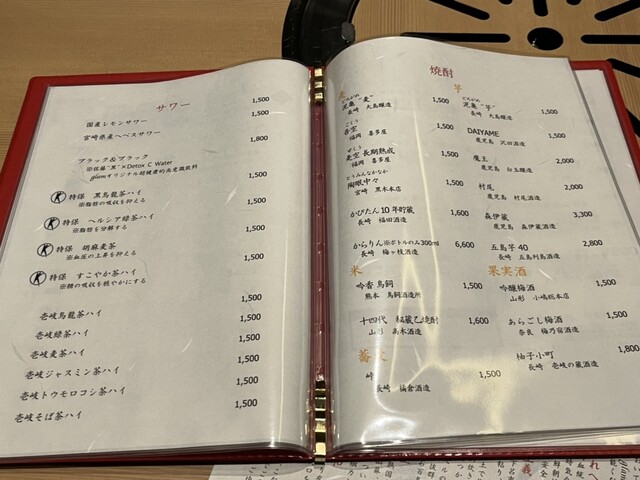 サワー
国産レモンサワー 1,500
宮崎県産ヘベスサワー 1,500
ブラック&ブラック 1,800
※佐藤"黒"×Detox C Water
glamオリジナル超健康的高史織飲料
特保 黒烏龍茶ハイ 1,500
※脂肪の吸収を抑える
特保 ヘルシア緑茶ハイ 1,500
※脂肪を分解する
特保 胡麻麦茶 1,500
※血圧の上昇を抑える
特保 すこやか茶ハイ 1,500
※糖の吸収を穏やかにする
壱岐烏龍茶ハイ 1,500
壱岐緑茶ハイ 1,500
壱岐麦茶ハイ 1,500
壱岐ジャスミン茶ハイ 1,500
壱岐トウモロコシ茶ハイ 1,500
壱岐そば茶ハイ 1,500
焼酎
麦
どろがめ
泥亀 "麦" 1,500
長崎 大島醸造
ごくう
吾空 1,500
福岡 喜多屋
ぜくう
是空 長期熟成 1,500
福岡 喜多屋
とうみんなかなか
陶眠中々 1,500
宮崎 黒木本店
かぴたん10年貯蔵 1,600
長崎 福田酒造
からりん※ボトルのみ300ml 6,600
長崎 梅ヶ枝酒造
米
吟香鳥飼 1,500
熊本 鳥飼酒造所
十四代 秘蔵乙焼酎 1,600
山形 高木酒造
蕎麦
峠 1,500
長崎 福倉酒造
芋
どろがめ
泥亀 "芋" 1,500
長崎 大島醸造
DAIYAME 1,500
鹿児島 沢田酒造
魔王 2,000
鹿児島 白玉醸造
村尾 2,000
鹿児島 村尾酒造
森伊蔵 3,300
鹿児島 森伊蔵酒造
五島芋40 2,800
長崎 五島列島酒造
果実酒
吟醸梅酒 1,500
山形 小嶋総本店
あらごし梅酒 1,500
奈良 梅乃宿酒造
柚子小町 1,800
長崎 壱岐の蔵酒造